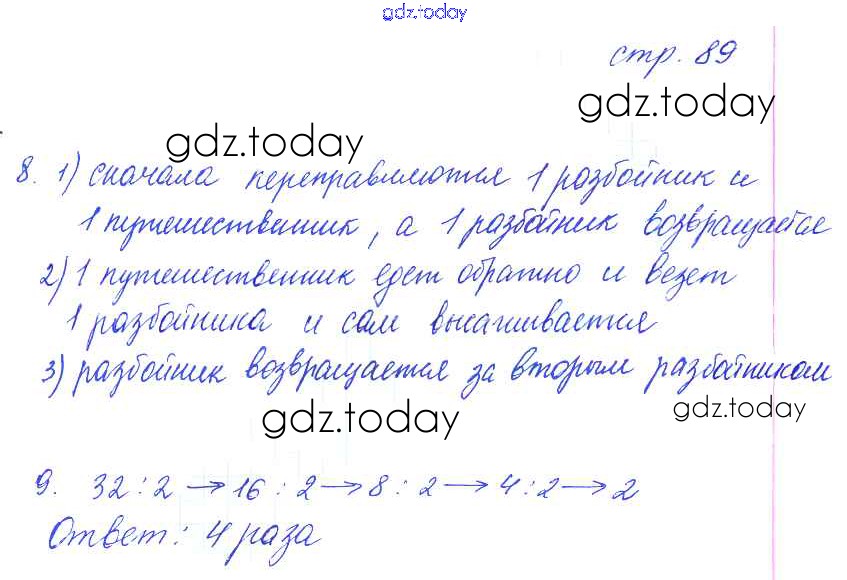 gdz.today
стр. 89
gdz.today
gdz.today
8. 1) сначала переправляются 1 разбойник и
1 путешественник, а 1 разбойник возвращается
2) 1 путешественник едет обратно и везет
1 разбойника и сам высаживается
3) разбойник возвращается за вторым разбойником
gdz.today
gdz.today
9. 32 : 2 → 16 : 2 → 8 : 2 → 4 : 2 → 2
Ответ: 4 раза